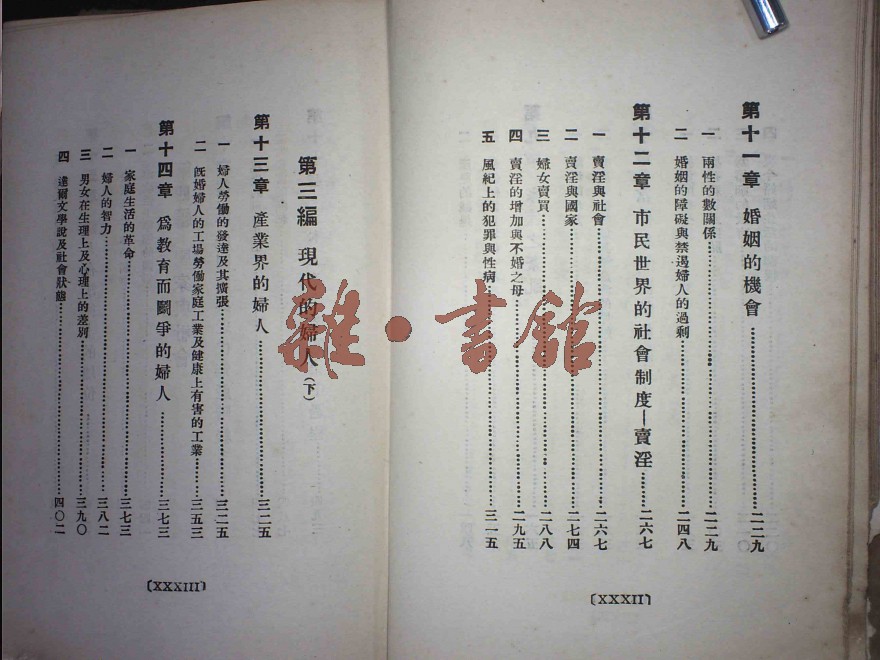 第十一章 婚姻的機會……二二九
一 兩性的數關係……二二九
二 婚姻的障礙與禁遏婦人的過剩……二四八
第十二章 市民世界的社會制度—賣淫……二六七
一 賣淫與社會……二六七
二 賣淫與國家……二七四
三 婦女賣買……二八八
四 賣淫的增加與不婚之母……二九五
五 風紀上的犯罪與性病……三一五
(XXXII)
第三編 現代的婦人(下)
第十三章 產業界的婦人……三二五
一 婦人勞働的發達及其擴張……三二五
二 既婚婦人的工場勞働家庭工業及健康上有害的工業……三五三
第十四章 爲教育而鬭爭的婦人……三七三
一 家庭生活的革命……三七三
二 婦人的智力……三八二
三 男女在生理上及心理上的差別……三九〇
四 達爾文學說及社會狀態……四〇二
(XXXIII)
雜·書館